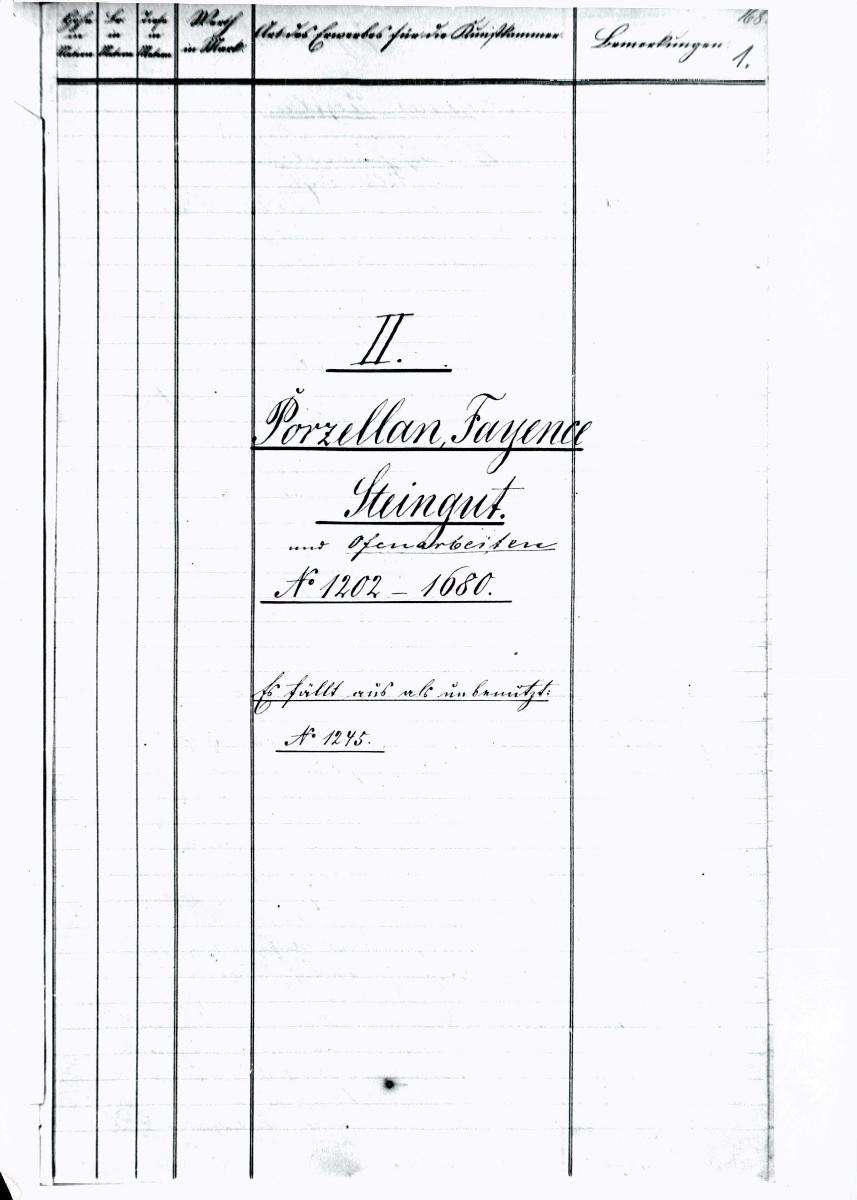 168.
1.
Höhe in Metern
Br. in Metern
Tiefe in Metern
Werth in Mark
Art des Erwerbes für die Kunstkammer.
Bemerkungen.
II.
Porzellan, Fayence
Steingut.
und Ofenarbeiten
No 1202 – 1680.
Es fällt aus als unbenutzt:
No 1245.